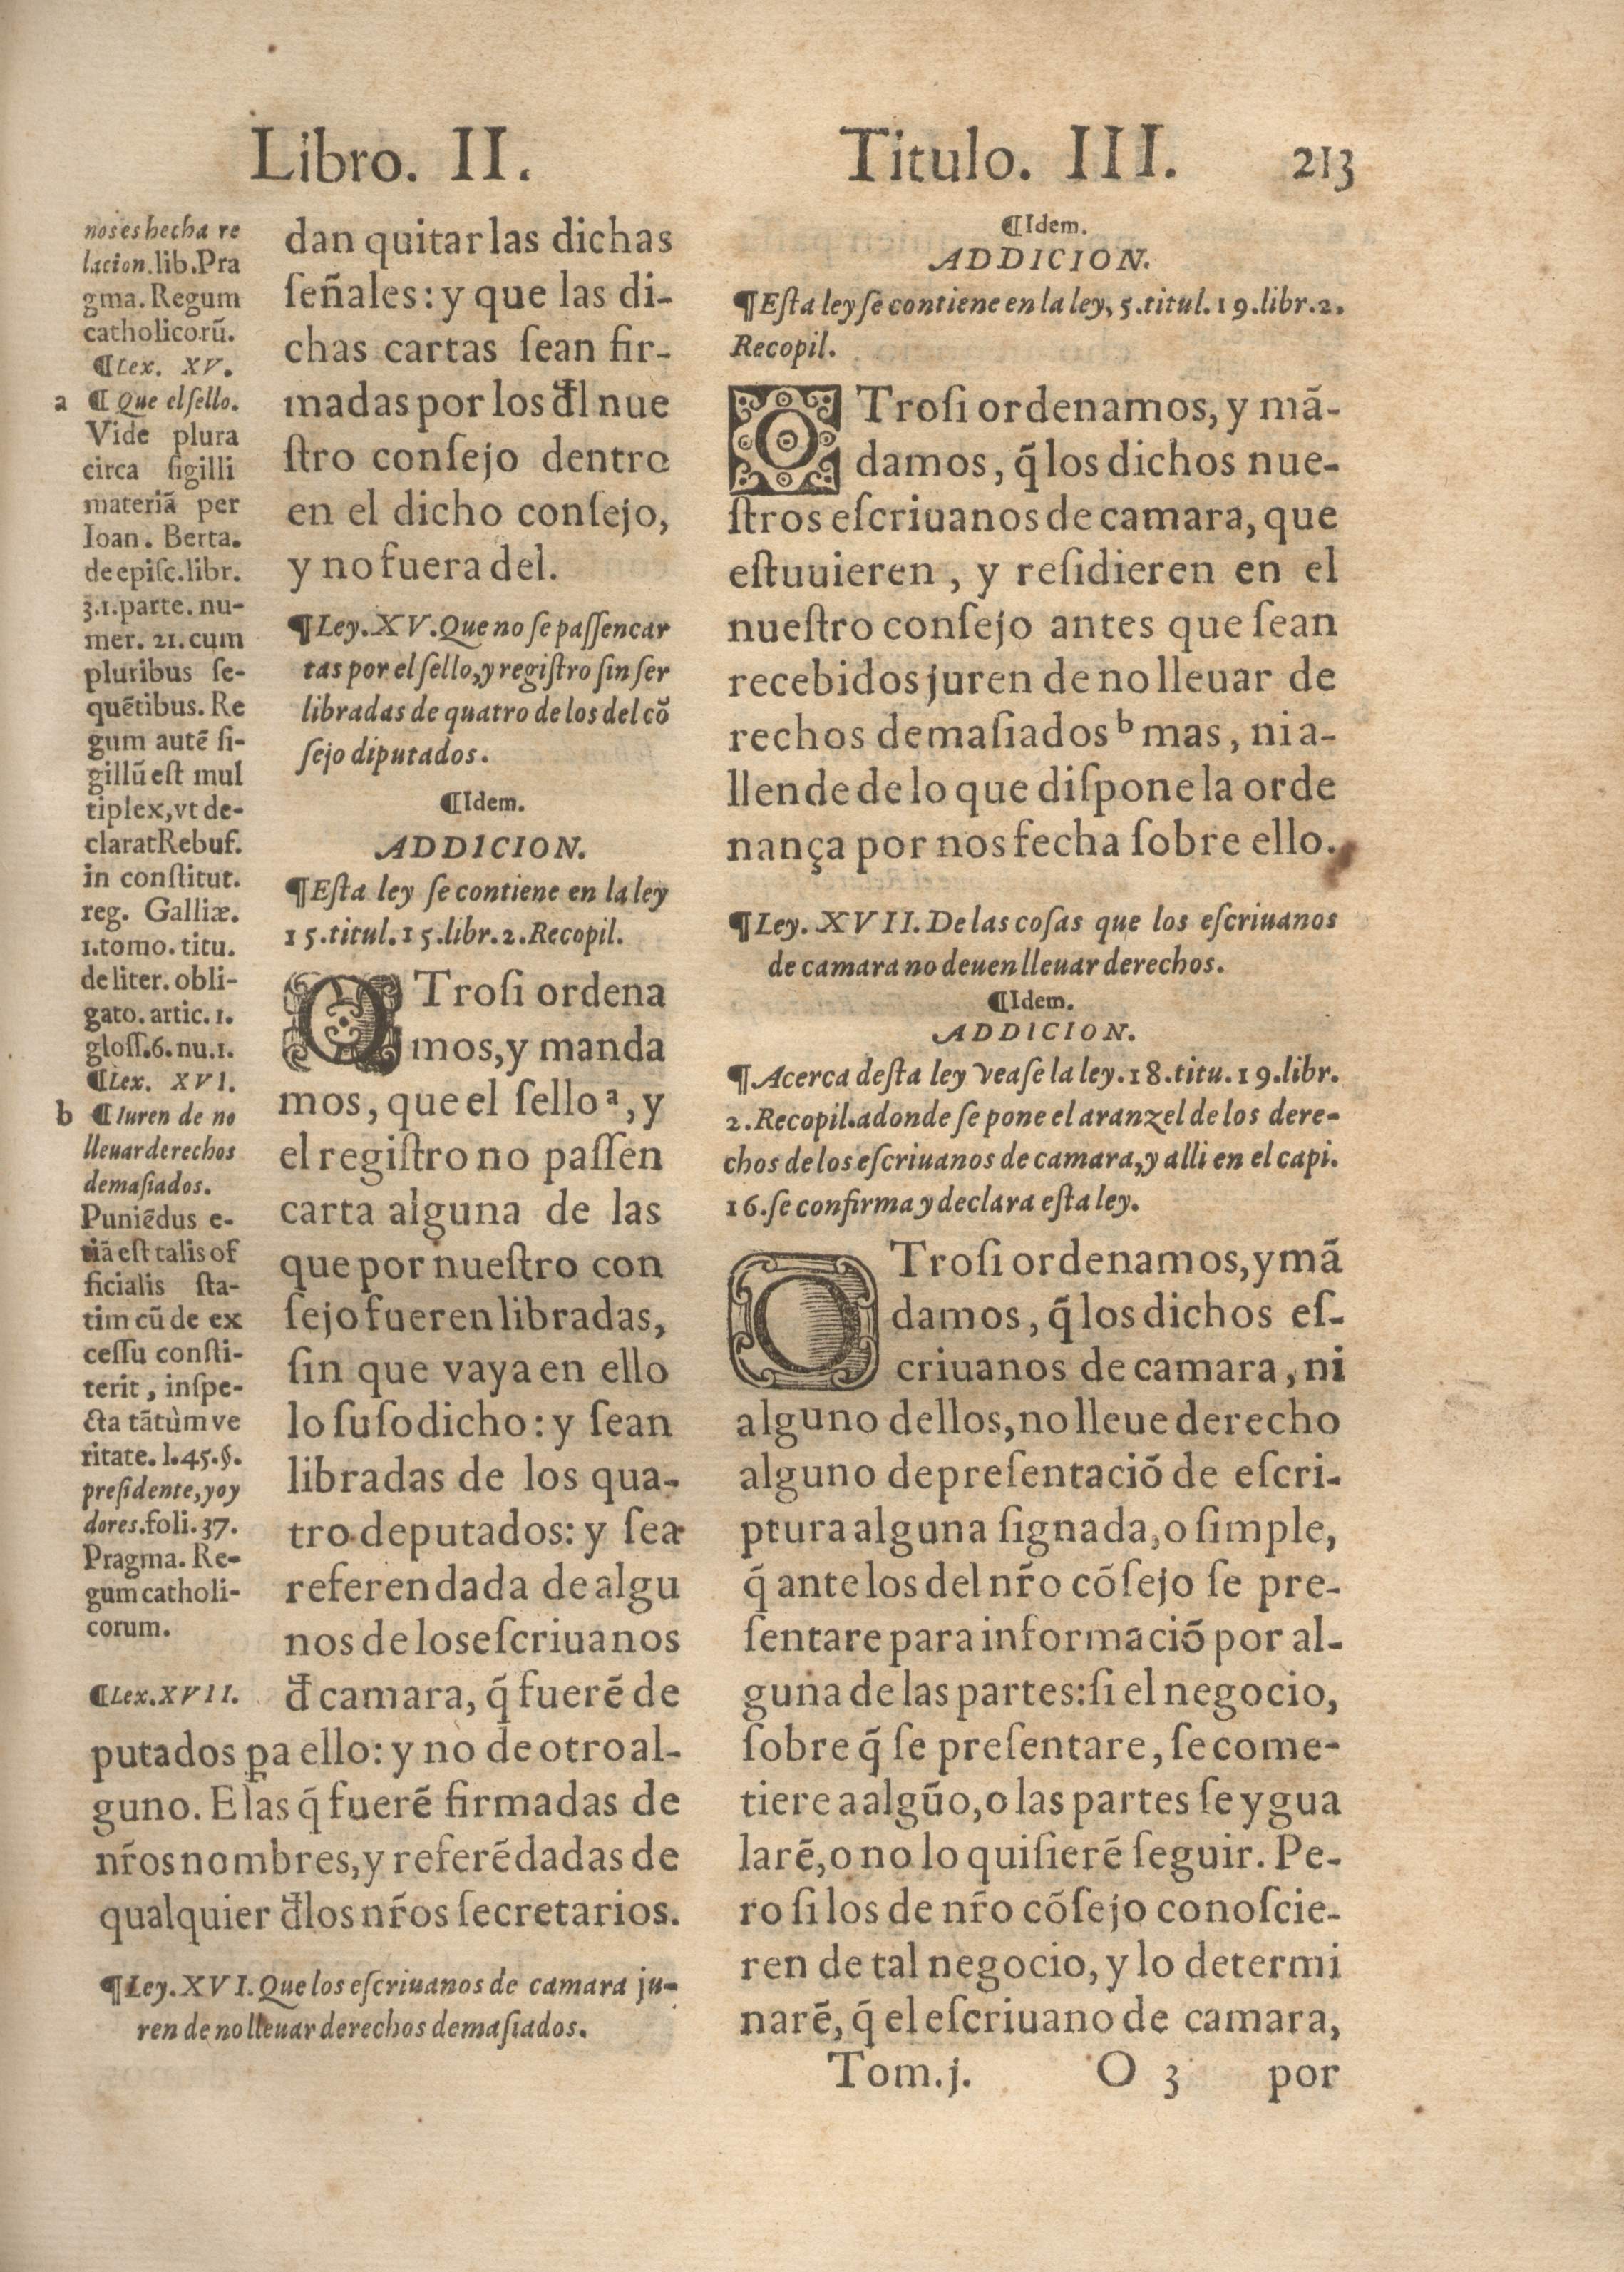 Libro. II.
Titulo. III. 213
nos es hecha re
lacion.lib.Pra
gma. Regum
catholicorū.
¶Lex. XV.
a ¶ Que el ſello.
Vide plura
circa ſigilli
materiā per
Ioan. Berta.
de epiſc.libr.
3.1.parte. nu-
mer. 21. cum
pluribus ſe-
quētibus. Re
gum autē ſi-
gillū eſt mul
tiplex,vt de-
clarat Rebuf.
in conſtitut.
reg. Galliæ.
1.tomo. titu.
de liter. obli-
gato. artic. 1.
gloſſ.6. nu.1.
¶Lex. XVI.
b ¶Iuren de no
lleuar derechos
demaſiados.
Puniēdus e-
tiā eſt talis of
ficialis ſta-
tim cū de ex
ceſſu conſti-
terit, inſpe-
cta tātùm ve
ritate. l.45.§.
preſidente,y oy
dores.foli.37.
Pragma. Re-
gum catholi-
corum.
¶Lex.XVII.
dan quitar las dichas
ſeñales: y que las di-
chas cartas ſean fir-
madas por los đl nue
ſtro conſejo dentro
en el dicho conſejo,
y no fuera del.
¶Ley.XV.Que no ſe paſſen car
tas por el ſello,y regiſtro ſin ſer
libradas de quatro de los del cō
ſejo diputados.
¶Idem.
ADDICION.
¶Eſta ley ſe contiene en la ley
15.titul.15.libr.2.Recopil.
OTroſi ordena
mos,y manda
mos, que el ſello a, y
el regiſtro no paſſen
carta alguna de las
que por nueſtro con
ſejo fueren libradas,
ſin que vaya en ello
lo ſuſodicho: y ſean
libradas de los qua-
tro deputados: y ſea
referendada de algu
nos de los eſcriuanos
đ camara, q̄ fuerē de
putados ꝑa ello: y no de otro al-
guno. E las q̄ fuerē firmadas de
nr̄os nombres,y referēdadas de
qualquier đlos nr̄os ſecretarios.
¶Ley.XVI.Que los eſcriuanos de camara ju-
ren de no lleuar derechos demaſiados.
¶Idem.
ADDICION.
¶Eſta ley ſe contiene en la ley, 5.titul.19.libr.2.
Recopil.
OTroſi ordenamos, y mā-
damos, q̄ los dichos nue-
ſtros eſcriuanos de camara, que
eſtuuieren, y reſidieren en el
nueſtro conſejo antes que ſean
recebidos juren de no lleuar de
rechos demaſiados b mas, ni a-
llende de lo que diſpone la orde
nança por nos fecha ſobre ello.
¶Ley. XVII. De las coſas que los eſcriuanos
de camara no deuen lleuar derechos.
¶Idem.
ADDICION.
¶Acerca deſta ley veaſe la ley.18.titu.19.libr.
2.Recopil.adonde ſe pone el aranzel de los dere-
chos de los eſcriuanos de camara,y alli en el capi.
16.ſe confirma y declara eſta ley.
OTroſi ordenamos,y mā
damos, q̄ los dichos eſ-
criuanos de camara, ni
alguno dellos,no lleue derecho
alguno de preſentaciō de eſcri-
ptura alguna ſignada,o ſimple,
q̄ ante los del nr̄o cōſejo ſe pre-
ſentare para informaciō por al-
guna de las partes:ſi el negocio,
ſobre q̄ ſe preſentare, ſe come-
tiere a algūo,o las partes ſe ygua
larē,o no lo quiſierē ſeguir. Pe-
ro ſi los de nr̄o cōſejo conoſcie-
ren de tal negocio, y lo determi
narē, q̄ el eſcriuano de camara,
Tom.j. O 3 por